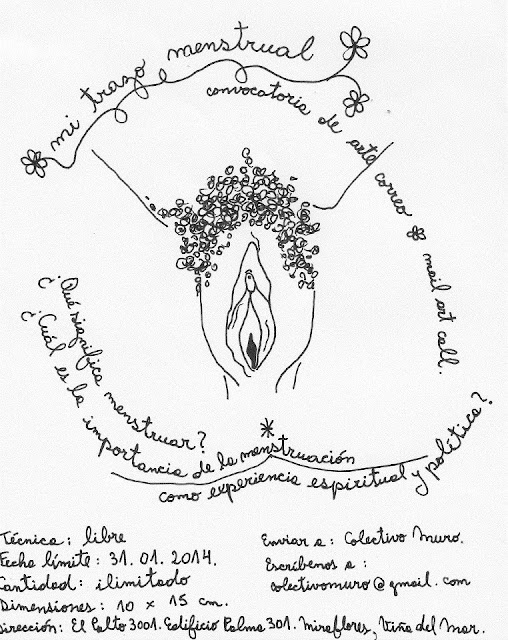 mi trazo menstrual
convocatoria de arte correo * mail art call.
¿Qué significa menstruar?
¿Cuál es la importancia de la menstruación
como experiencia espiritual y política?
Técnica: libre
Fecha límite: 31.01.2014.
Cantidad: ilimitado
Dimensiones: 10 x 15 cm.
Enviar a: Colectivo Muro.
Escríbenos a:
colectivomuro@gmail.com
Dirección: El Palto 3001. Edificio Palma 301. Miraflores, Viña del Mar.